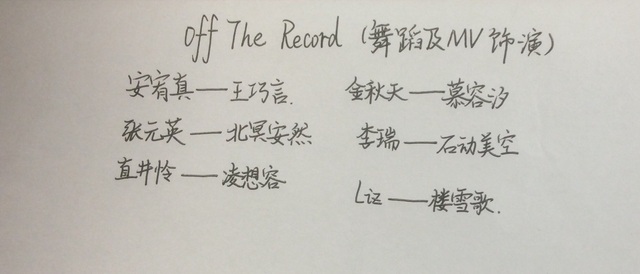 off The Record (舞蹈及MV饰演)
安宥真——王巧言.
张元英——北冥安然
直井怜——凌想容
金秋天——慕容汐
李瑞——石动美空
Liz——楼雪歌.